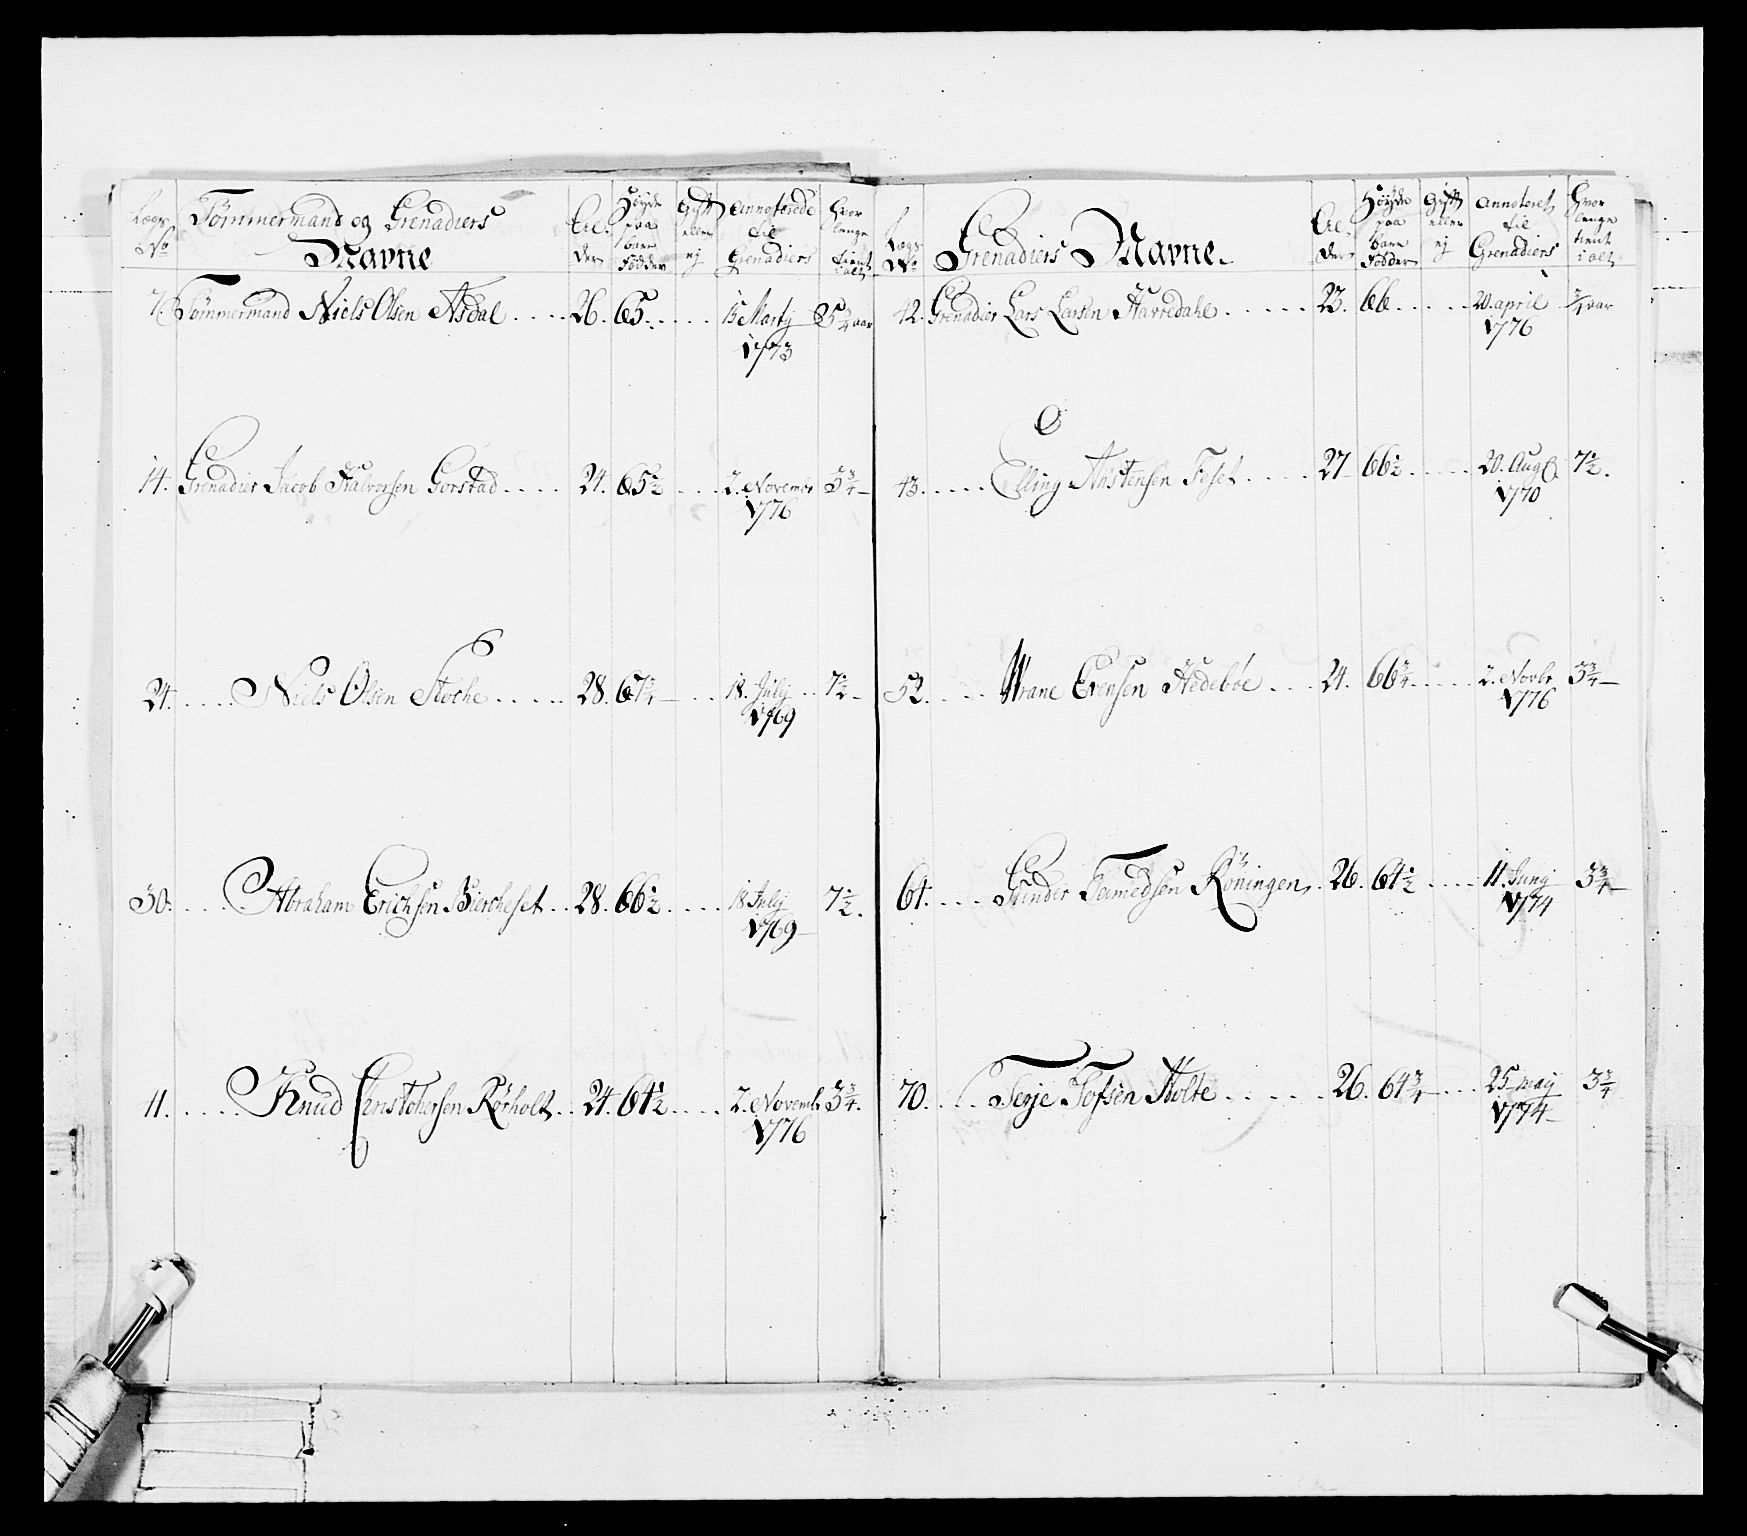 Lægs No
Tømmermand og Grenadiers Navne
Al: der
Høyde paa bare Fødder
Gift eller ej
Annoterede til Grenadiers
Hvor lenge tient i alt
7. Tømmermand Niels Olsen Asdal .... 26. 65. .... 15 Martij 1773 5 3/4 aar
14. Grenadier Jacob Halvorsen Gorstad .... 24. 65 1/2 ... 2. Novembr 1776 3 3/4
24. .... Niels Olsen Stoche ..... 28. 67 1/4 ... 18. Julij 1769 7 1/2
30. .... Abraham Erichsen Biercheset .. 28. 66 1/2 .... 18 Julij 1769 7 1/2.
11. .... Knud Christophersen Rørholt .. 24. 64 1/2 .... 2. Novembr 1776 3 3/4.
Lægs No
Grenadiers Navne.
Al: der
Høyde paa bare Fødder
Gift eller ej
Annoteret til Grenadiers
Hvor lenge tient i alt
42. Grenadier Lars Larsen Havredahl ..... 23. 66 ..... 20. april 1776 3/4 aar
43. .... Elling Anstensen Feset .... 27 66 1/2 .... 20. Aug 1770 7 1/2.
52. .... Wrane Evensen Hedebøe ... 24. 66 3/4 .... 2. Novbr 1776 3 3/4
64. .... Gunder Termedsen Røningen. 26. 64 1/2 .... 11. Junij 1774 3 3/4
70. .... Terje Tofsen Holte ...... 26. 64 3/4 ... 25 maij 1774 3 3/4